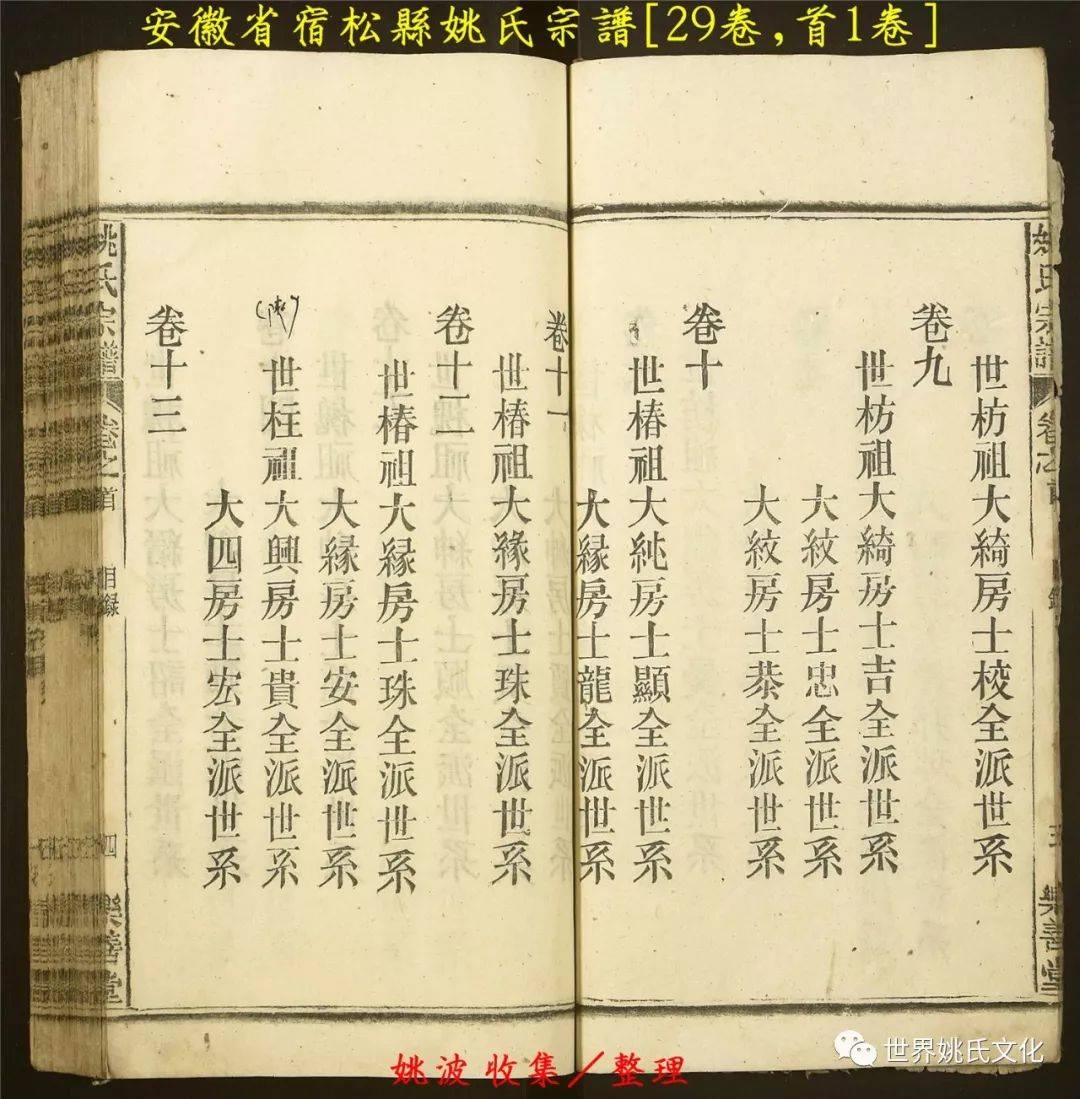 安徽省宿松縣姚氏宗譜[29卷,首1卷]
姚氏宗譜
卷之首
樂善堂
世枋祖大綺房士校全派世系
卷九
世枋祖大綺房士吉全派世系
大紋房士忠全派世系
大紋房士恭全派世系
卷十
世椿祖大純房士顯全派世系
大緣房士龍全派世系
卷十一
世椿祖大緣房士珠全派世系
卷十二
世椿祖大緣房士珠全派世系
大緣房士安全派世系
世柱祖大興房士貴全派世系
大四房士宏全派世系
卷十三
姚氏宗譜
卷之首
目錄
四
樂善堂
姚波收集/整理
世界姚氏文化